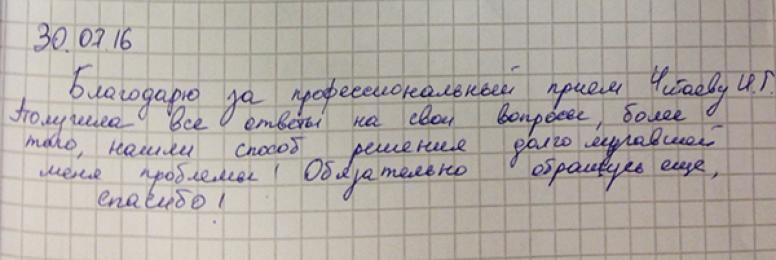 30.07.16
Благодарю за профессиональный прием Читаеву И.Г.
Получила все ответы на свои вопросы, более
того, нашли способ решения долго мучавшей
меня проблемы! Обязательно обращусь еще,
спасибо!